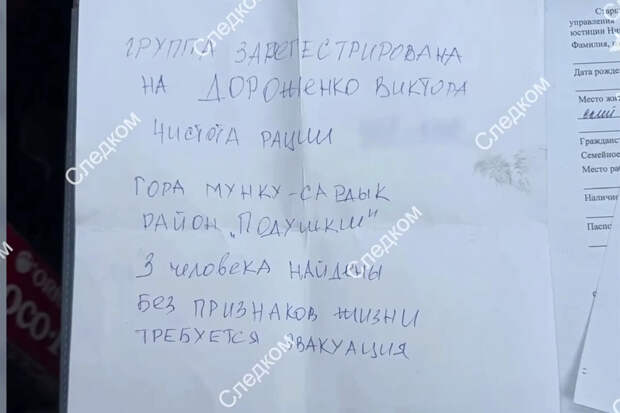 ГРУППА ЗАРЕГЕСТРИРОВАНА
НА ДОРОЖЕНКО ВИКТОРА
ЧИСТОТА РАЦИИ
ГОРА МУНКУ-САРДЫК
РАЙОН „ПОДУШКИ"
3 ЧЕЛОВЕКА НАЙДЕНЫ
БЕЗ ПРИЗНАКОВ ЖИЗНИ
ТРЕБУЕТСЯ ЭВАКУАЦИЯ
Следком
Следком
Следком
Следком
Следком
Следком
Следком
управления
юстиции
Фамилия,
Дата рожде
Место жит
Гражданст
Семейное
Место раб
Наличие
Паспо